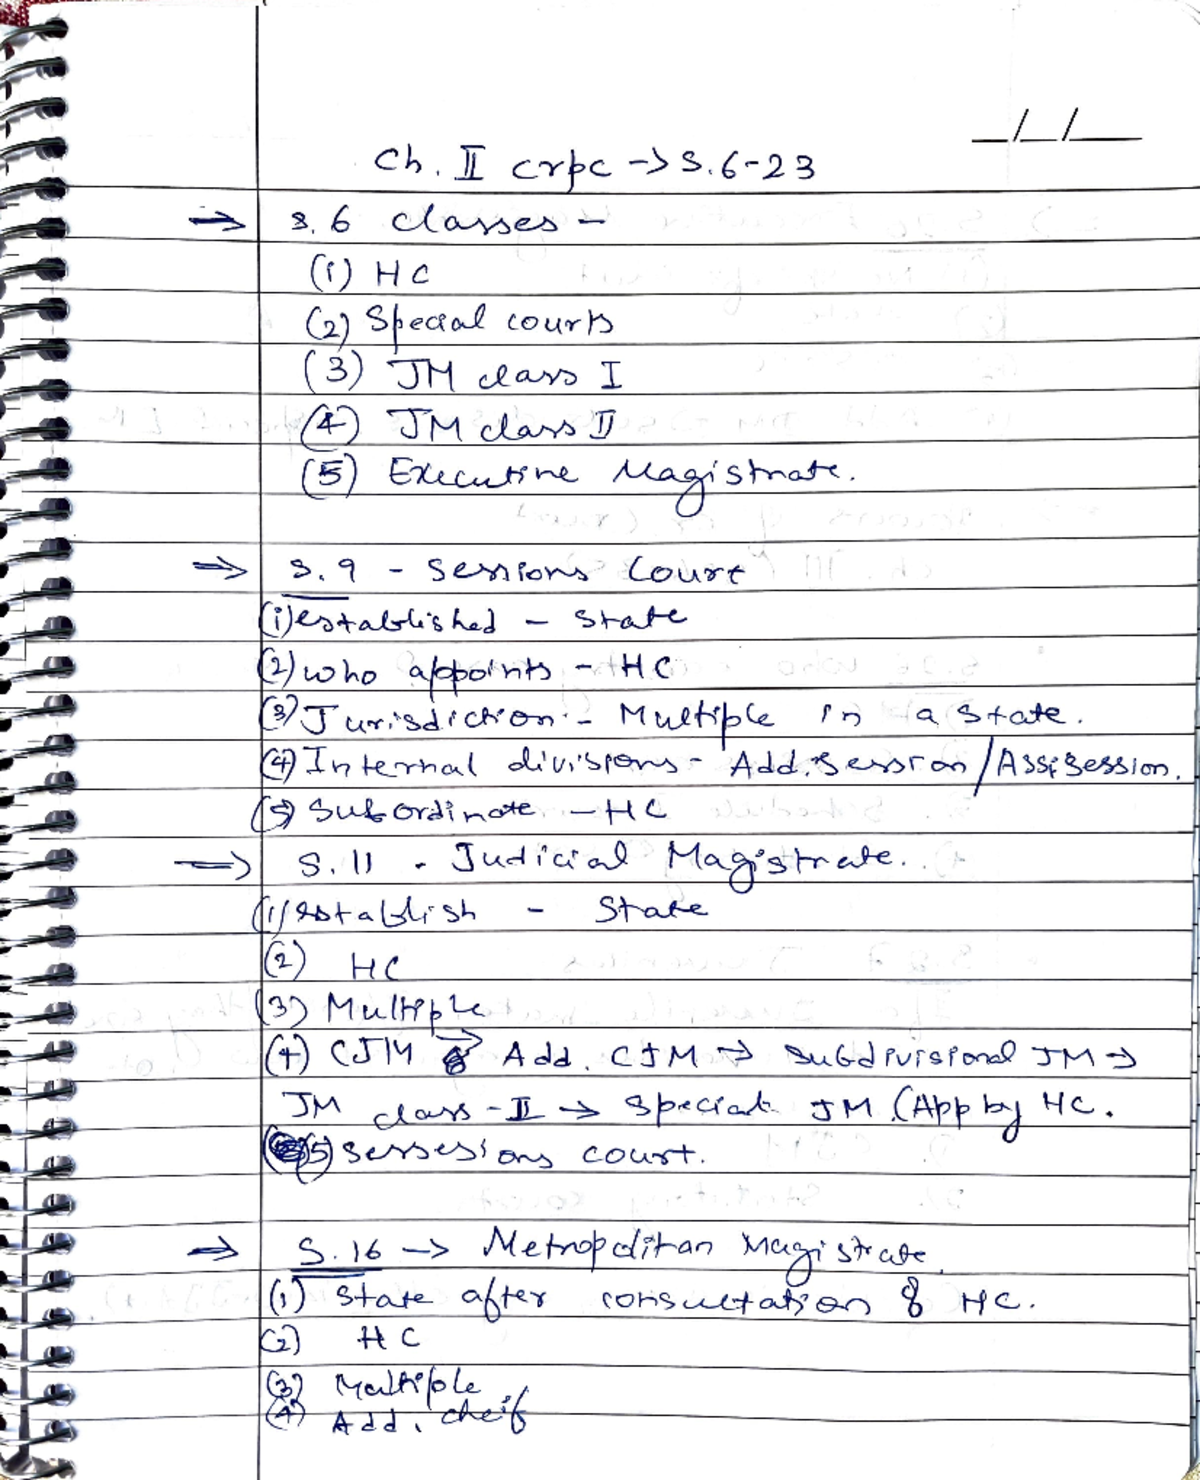 _/_/__
Ch. II crpc -> S.6-23
=> S.6 classes -
(1) HC
(2) Special courts
(3) JM class I
(4) JM class II
(5) Executive Magistrate.
=> S.9 - Sessions Court
(1) established - State
(2) who appoints - HC
(3) Jurisdiction - Multiple in a State.
(4) Internal divisions - Add. Session / Assi Session.
(5) Subordinate - HC
=> S.11 - Judicial Magistrate.
(1) establish - State
(2) HC
(3) Multiple
(4) CJM → Add. CJM → Subdivisional JM →
JM class-II → Special JM (App by HC.
(5) Sessesions court.
=> S.16 -> Metropolitan Magistrate.
(1) State after consultation of HC.
(2) HC
(3) Multiple
(4) Add. cheif